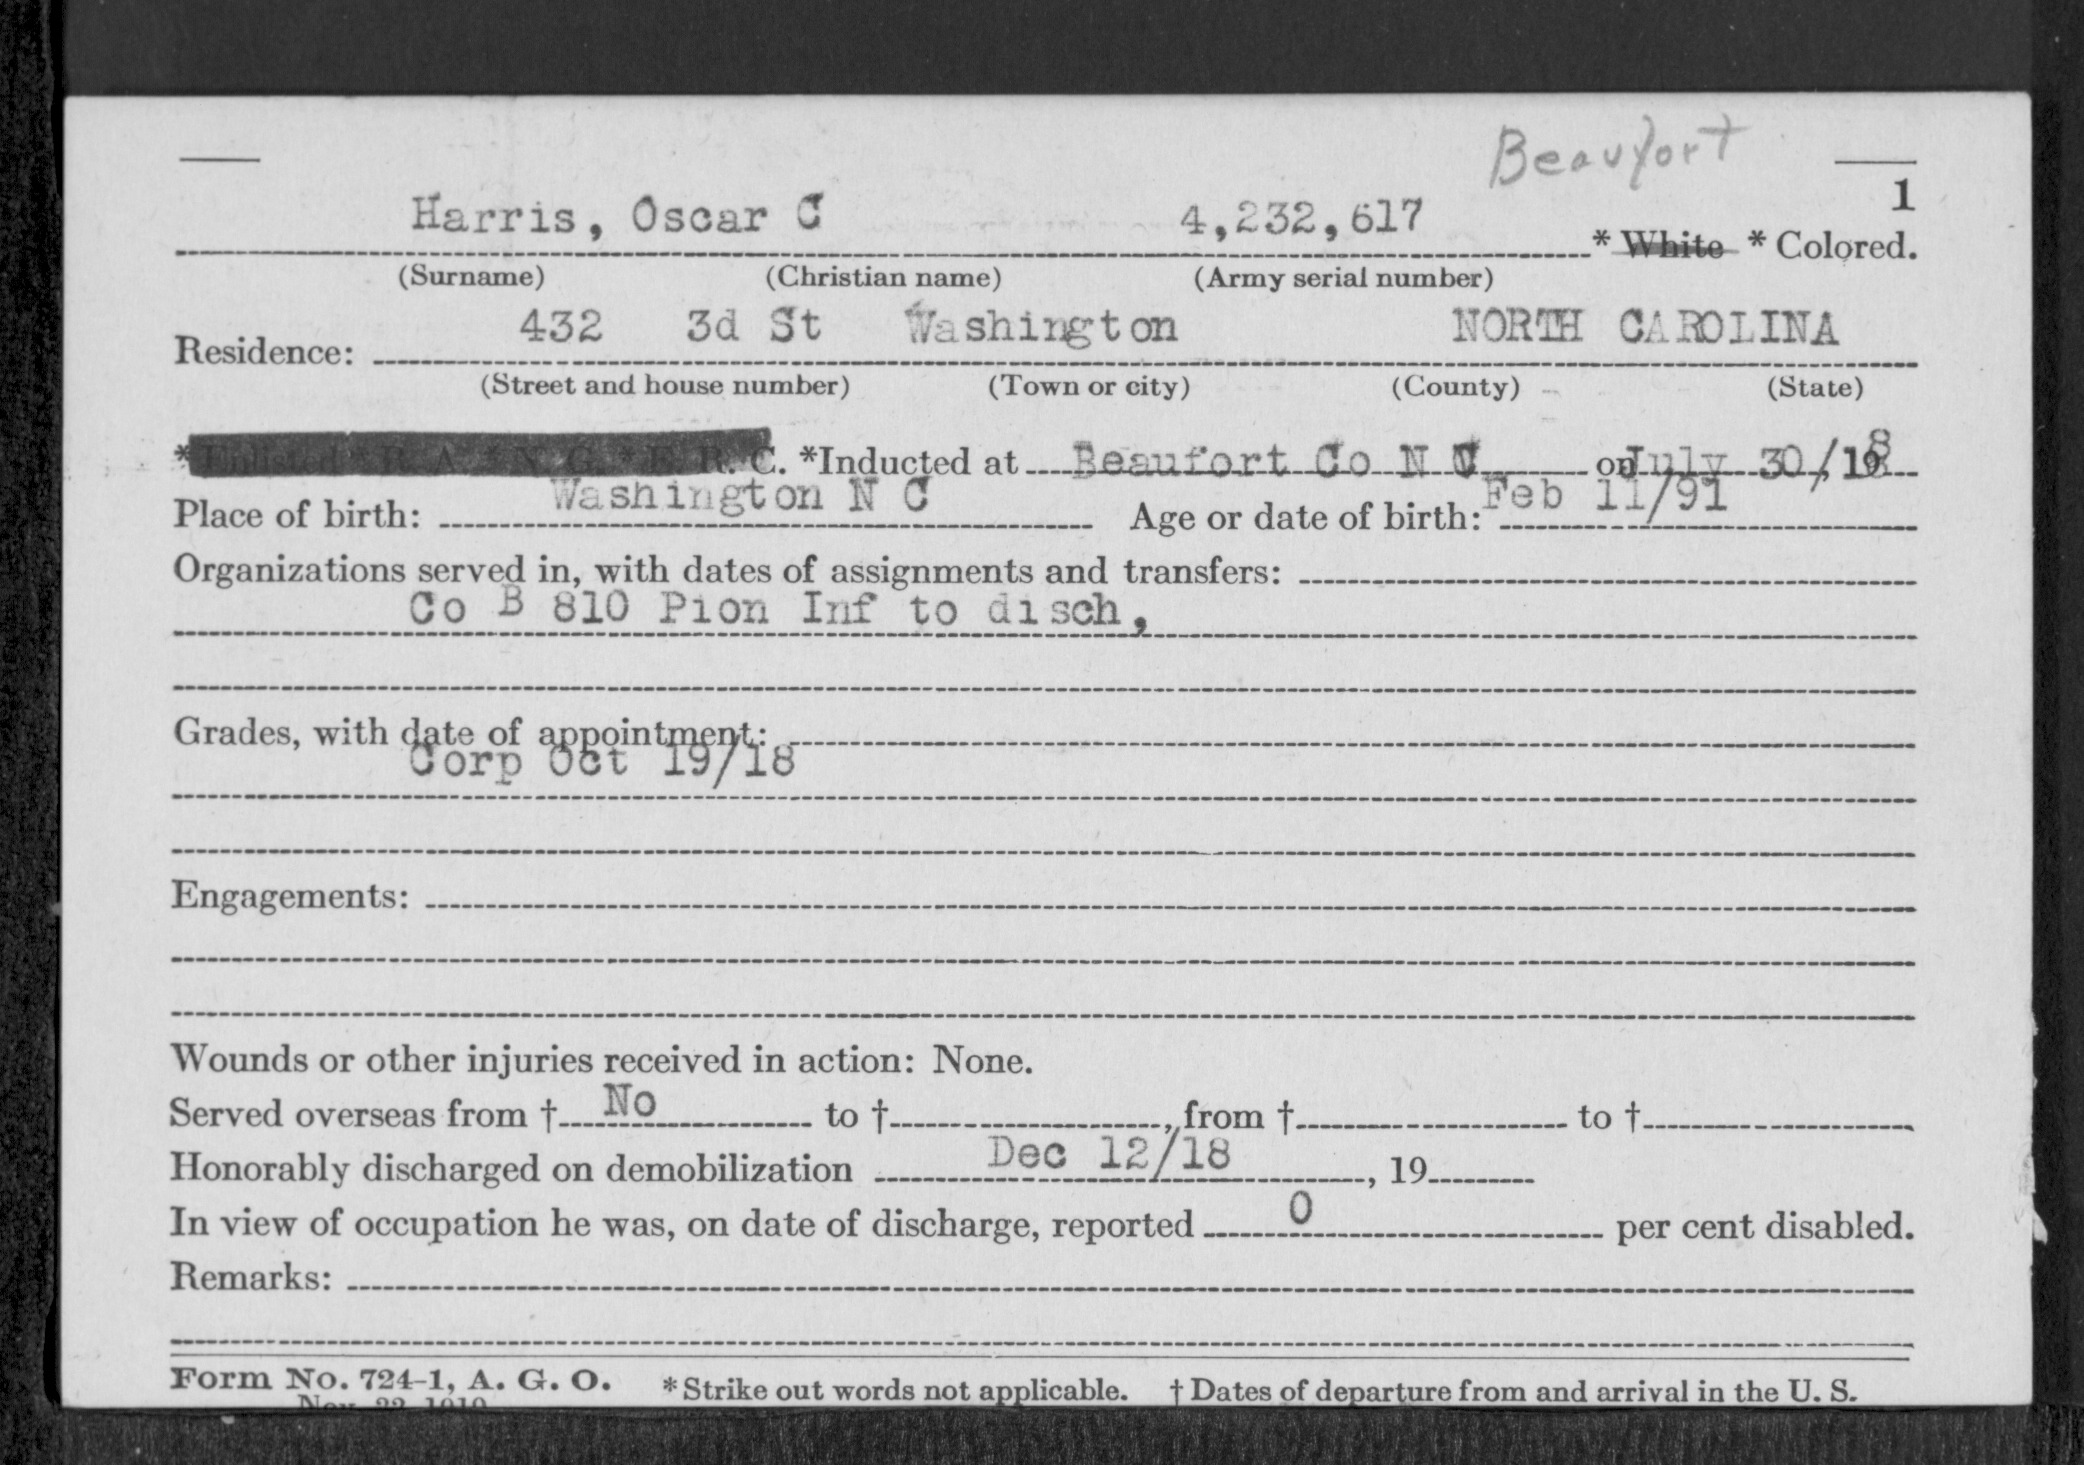 Beaufort
1
Harris, Oscar C 4,232,617 * White * Colored.
(Surname) (Christian name) (Army serial number)
Residence: 432 3d St Washington NORTH CAROLINA
(Street and house number) (Town or city) (County) (State)
*Enlisted * R. A. * N. G. * E. R. C. *Inducted at Beaufort Co N C on July 30/, 198
Place of birth: Washington N C Age or date of birth: Feb 11/91
Organizations served in, with dates of assignments and transfers:
Co B 810 Pion Inf to disch,
Grades, with date of appointment:
Corp Oct 19/18
Engagements:
Wounds or other injuries received in action: None.
Served overseas from † No to †, from † to †
Honorably discharged on demobilization Dec 12/18, 19
In view of occupation he was, on date of discharge, reported 0 per cent disabled.
Remarks:
Form No. 724-1, A. G. O. * Strike out words not applicable. † Dates of departure from and arrival in the U. S.
Nov. 22, 1919